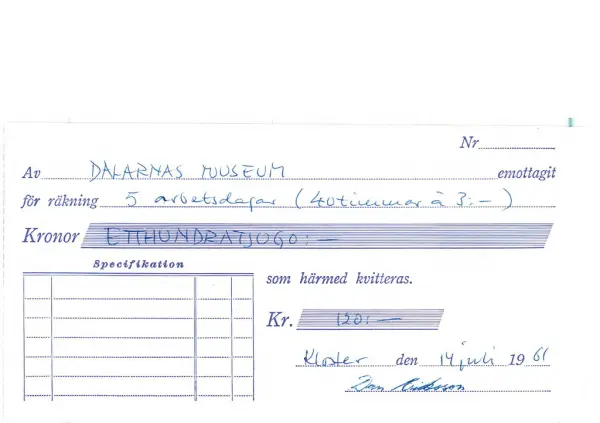 Nr
Av DALARNAS MUSEUM emottagit
för räkning 5 arbetsdagar (40 timmar à 3:-)
Kronor ETTHUNDRATJUGO:-
Specifikation
som härmed kvitteras.
Kr. 120:-
Kloster den 14 juli 1961
Dan